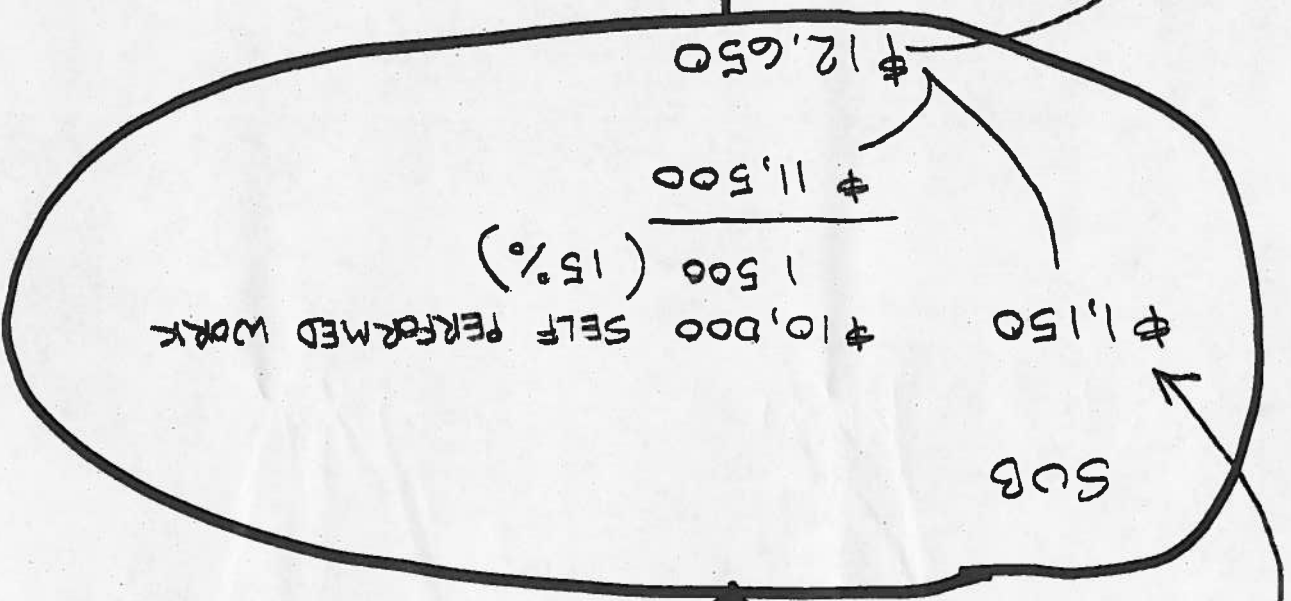 SUB
$1,150 $10,000 SELF PERFORMED WORK
1 500 (15%)
$11,500
$12,650